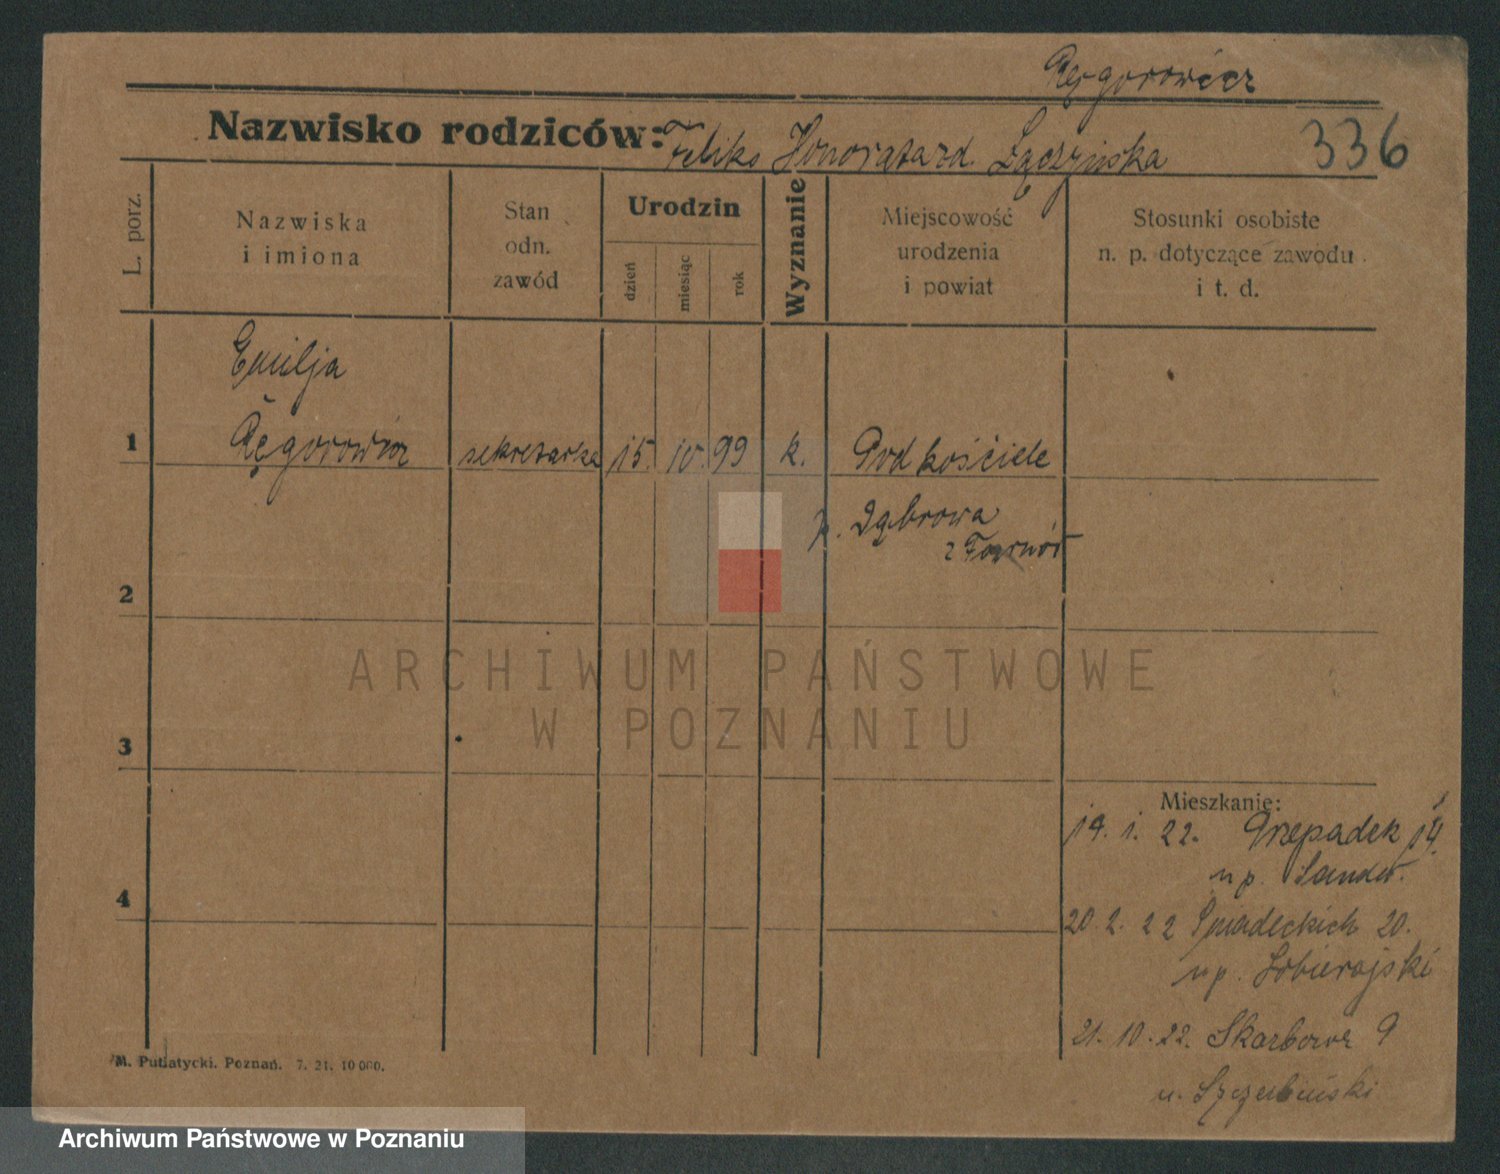 Ręgorowicz
Nazwisko rodziców: Feliks Honorata zd. Łączyńska
336
L. porz.
Nazwiska
i imiona
Stan
odn.
zawód
Urodzin
dzień
miesiąc
rok
Wyznanie
Miejscowość
urodzenia
i powiat
Stosunki osobiste
n. p. dotyczące zawodu
i t. d.
Emilja
1 Ręgorowicz sekretarka 15. 10. 99 k. Podkościele
p. Dąbrowa
z Tarnów
2
ARCHIWUM PAŃSTWOWE
W POZNANIU
3
Mieszkanie:
19. 1. 22. Przepadek 14.
u p.
4
20. 2. 22 Śniadeckich 20.
u p. Sobierajski
21. 10. 22. Skarbowa 9
u. Szczubiński
M. Putiatycki. Poznań. 7. 21. 10 000.
Archiwum Państwowe w Poznaniu